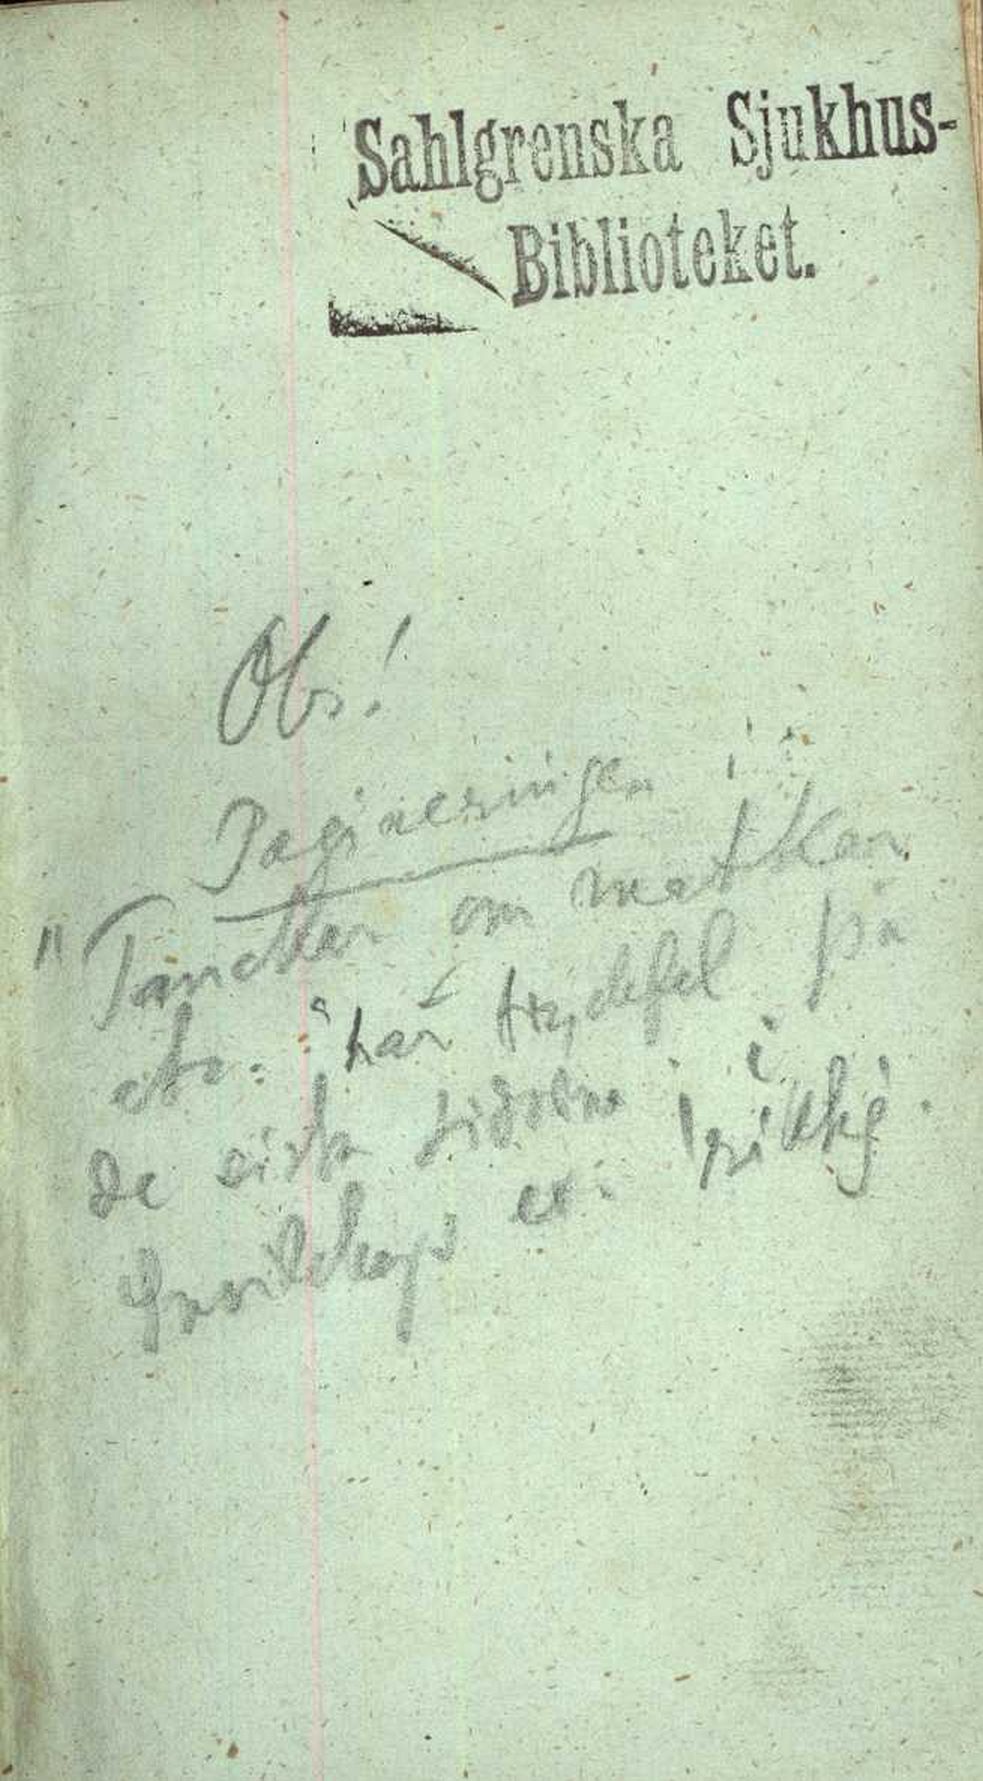 Sahlgrenska Sjukhus-
Biblioteket.
Obs!
Pagineringen i
"Tanckar om matkar
etc." har tryckfel på
de sista sidorna i
är riktig.